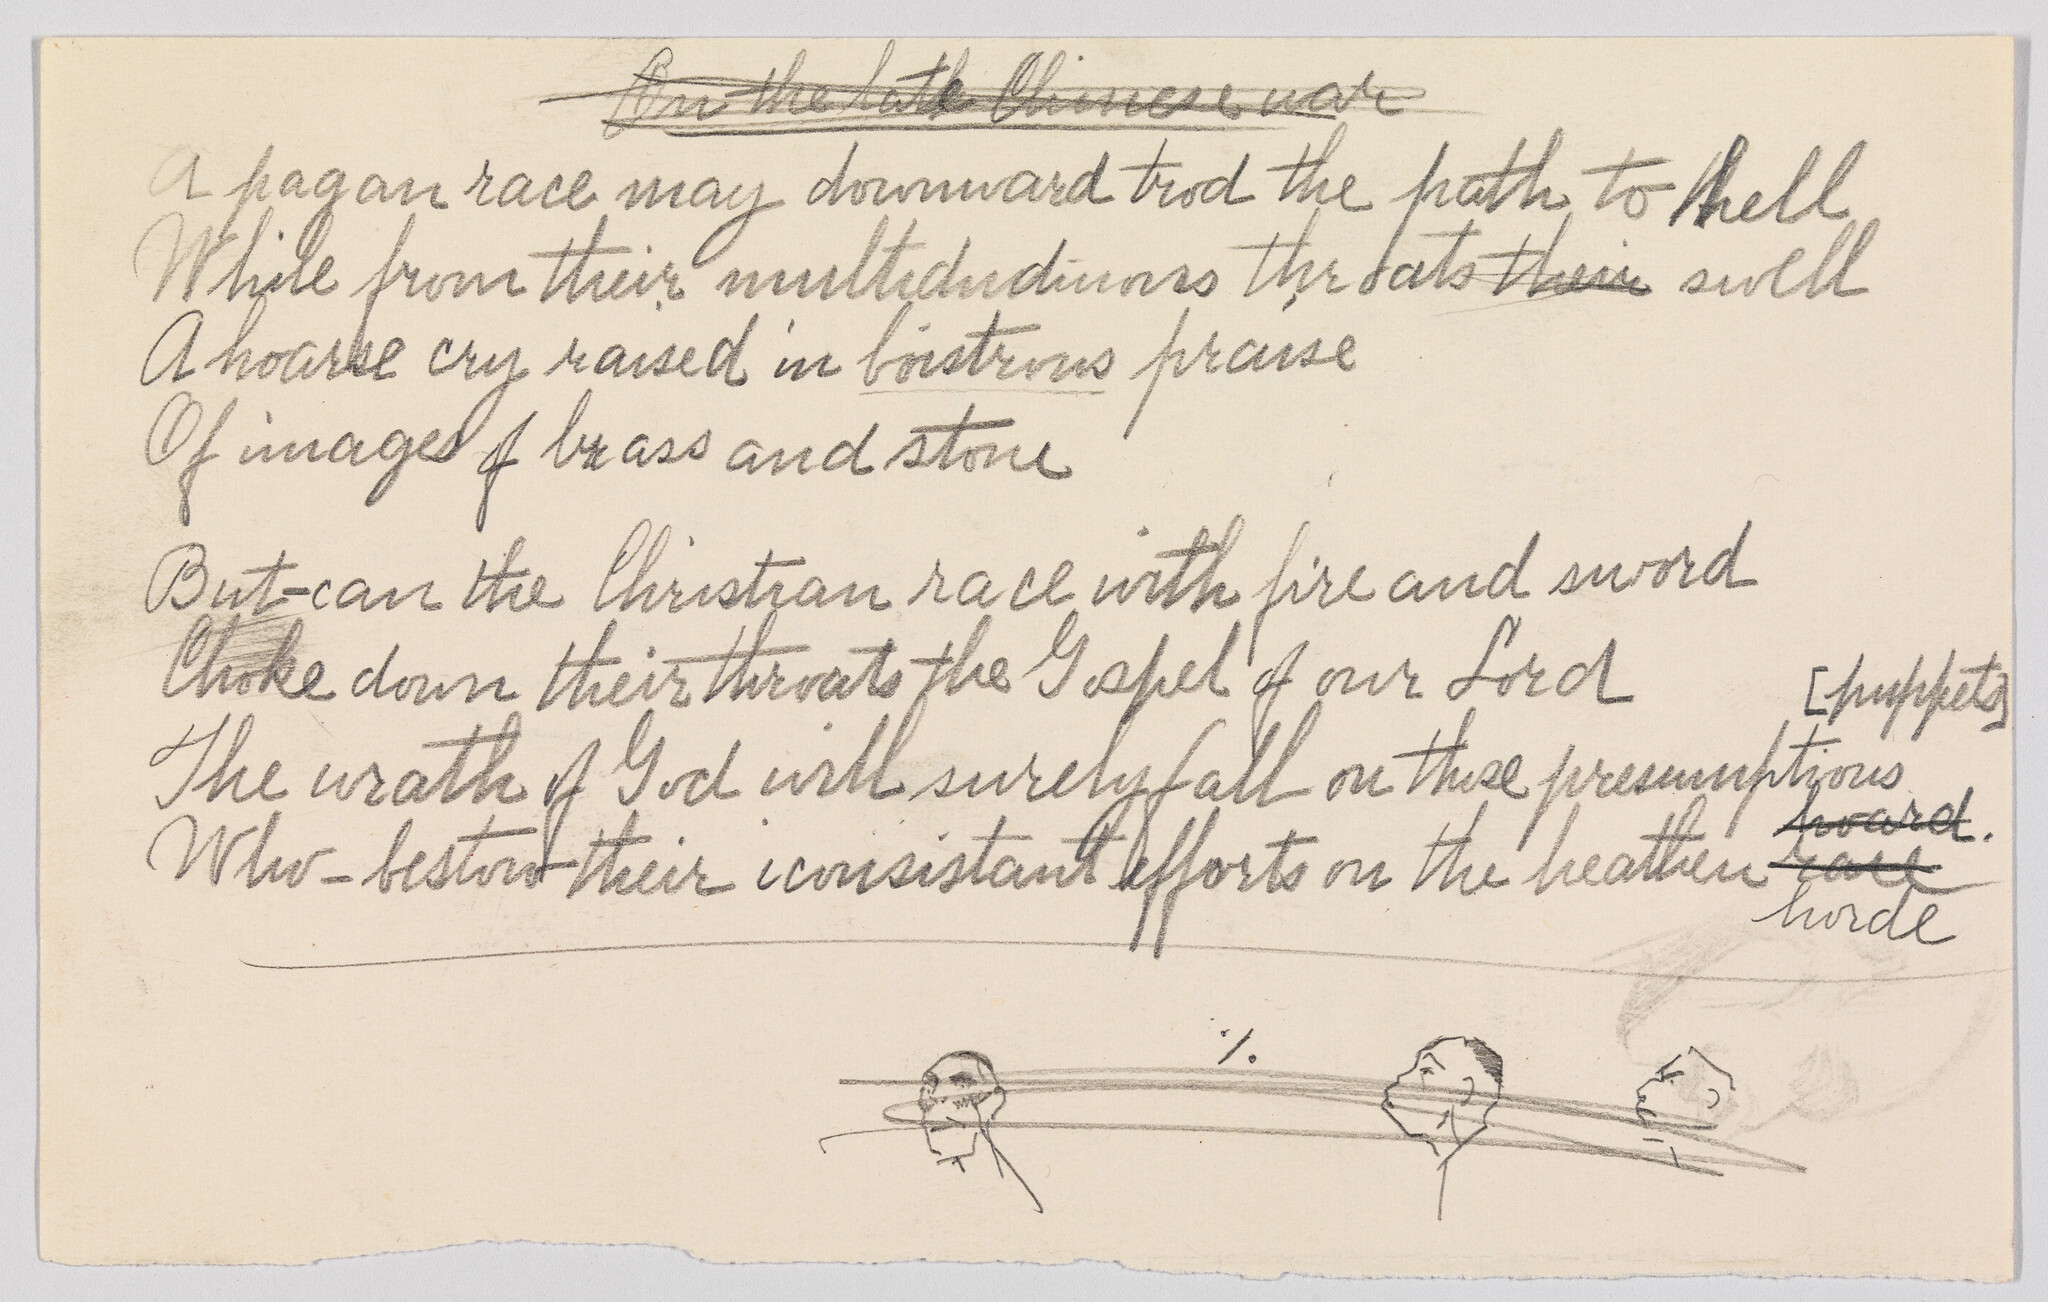 On the late Chinese war
A pagan race may downward trod the path to hell
While from their multidudinous throats their swell
A hoarse cry raised in boistrous praise
Of images of brass and stone
But-can the Christian race with fire and sword
Choke down their throats the Gospel of our Lord
[puppets]
The wrath of God will surely fall on these presumptious
hoard.
Who-bestow their iconsistant efforts on the heathen race
horde